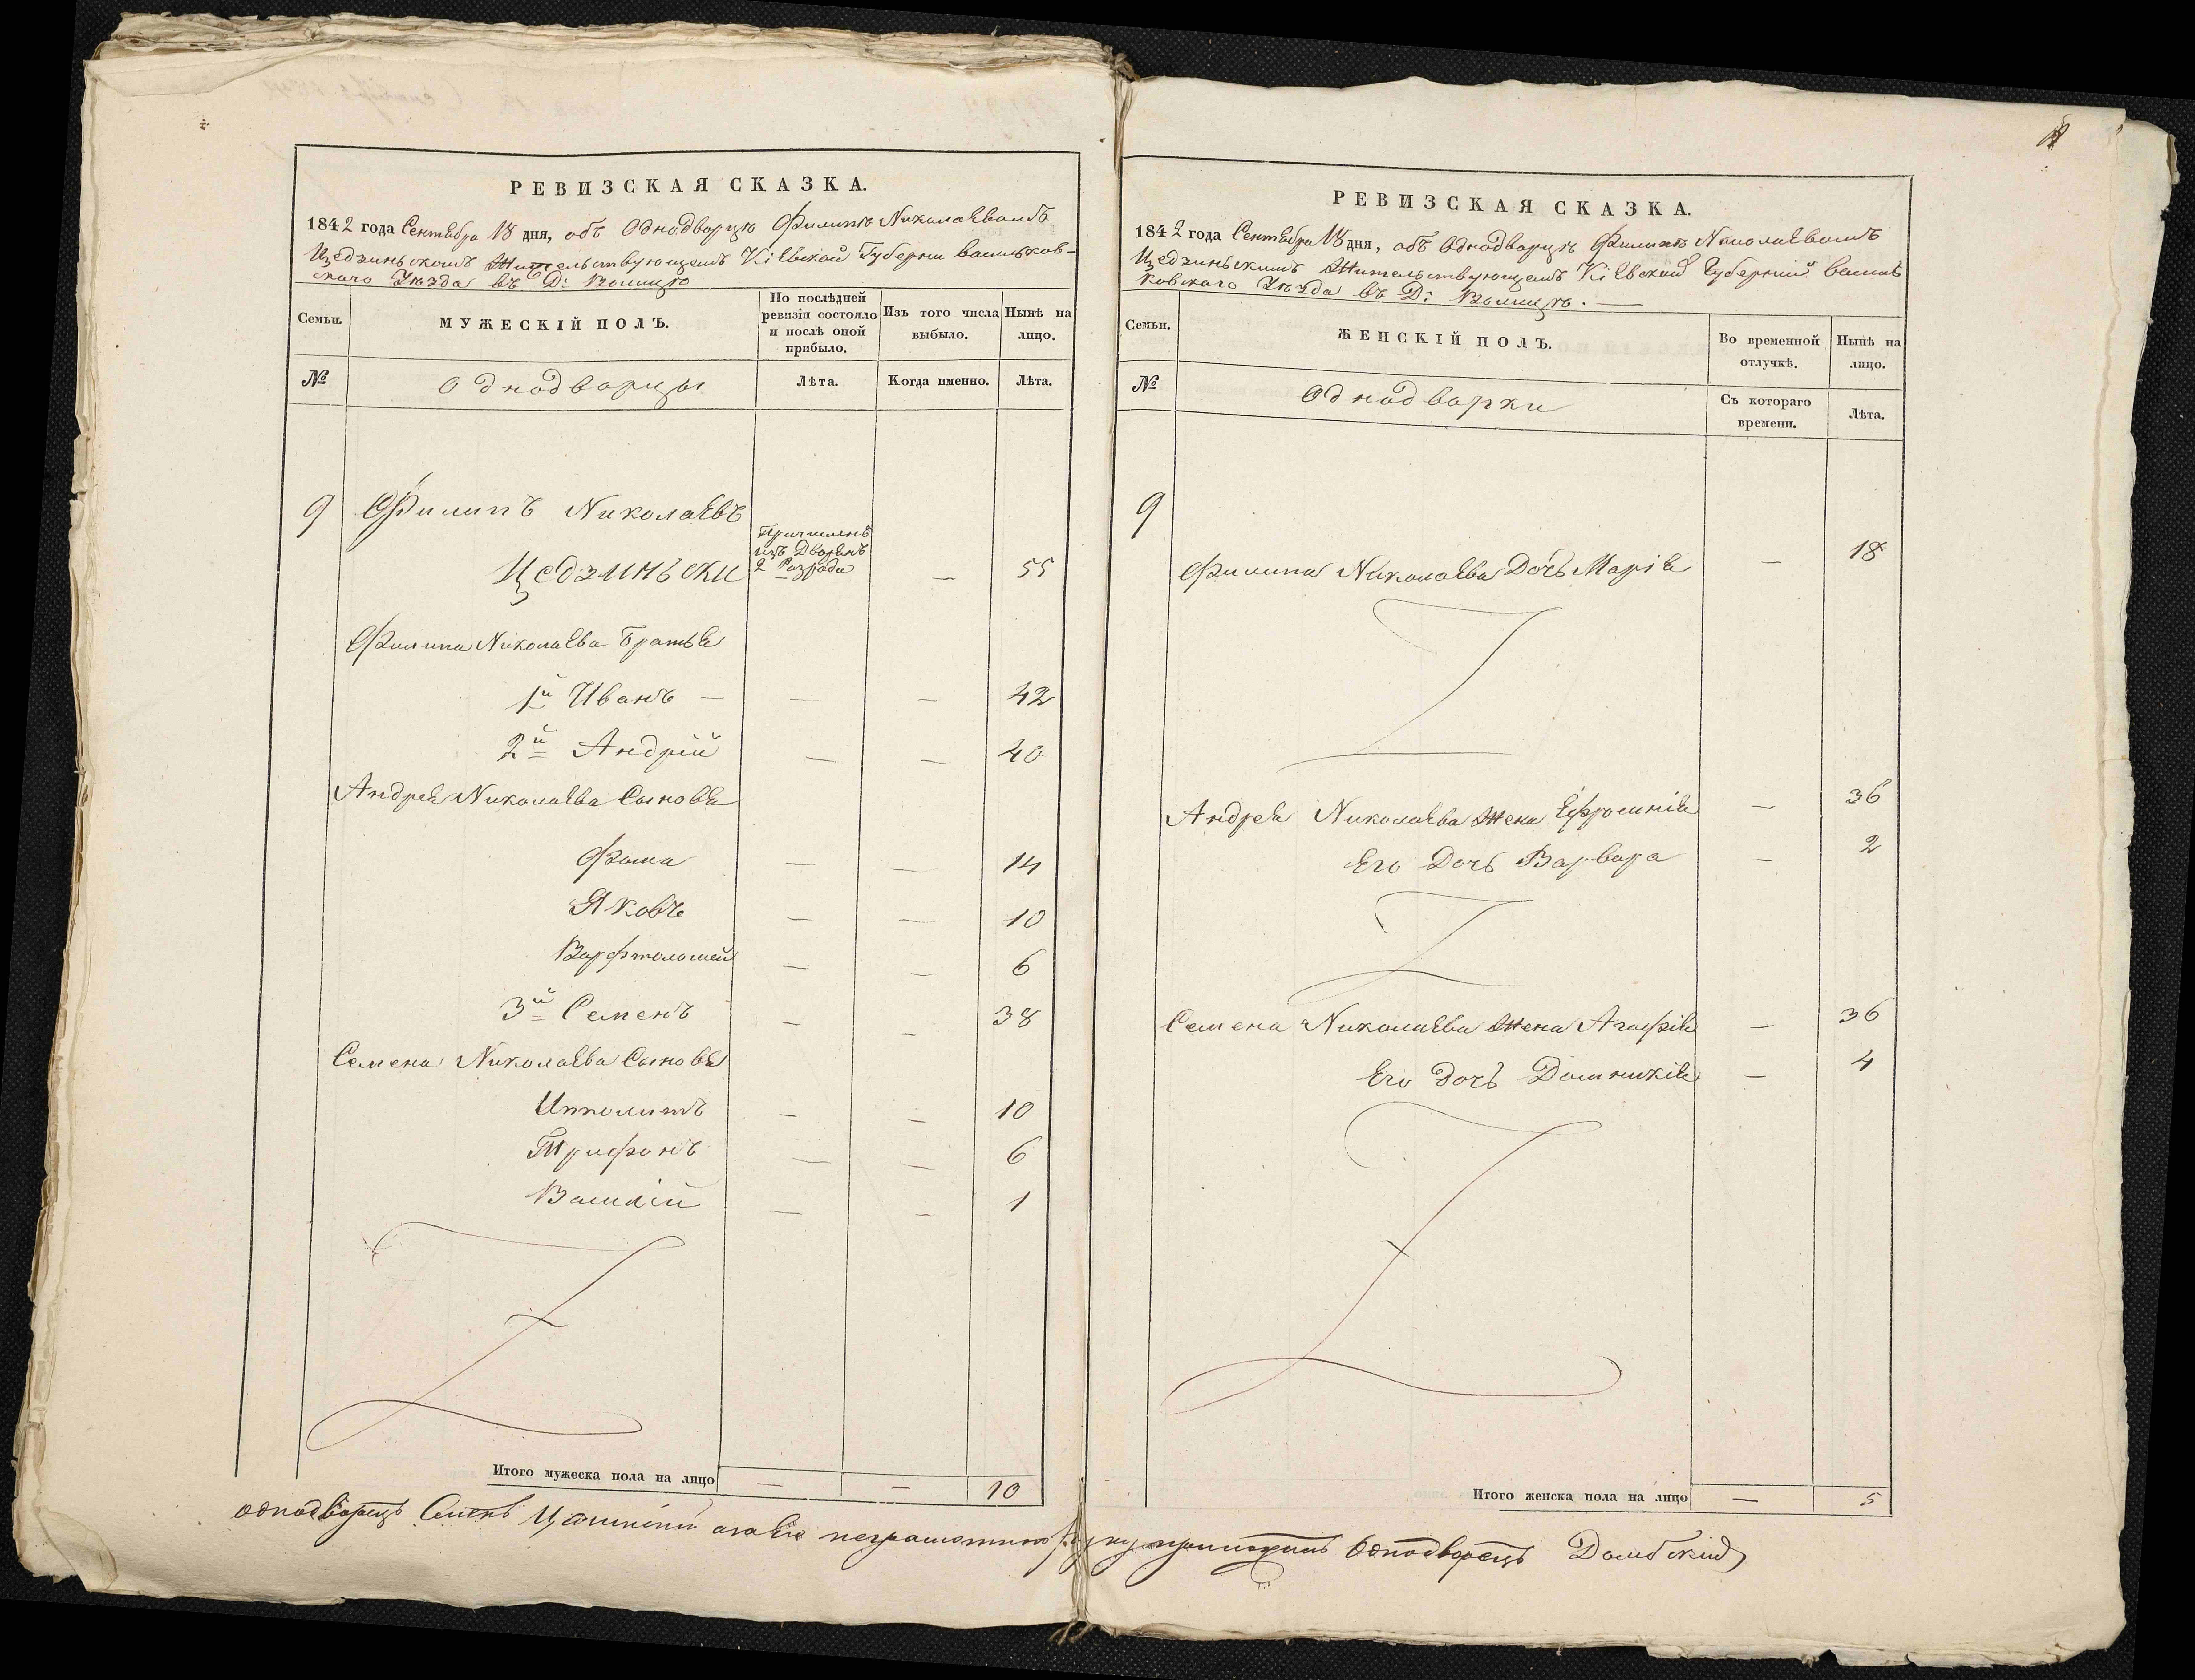 РЕВИЗСКАЯ СКАЗКА.
1842 года Сентября 18 дня, объ Однодворцѣ Филипѣ Николаевомъ
Цедзиньскомъ Жительствующемъ Кіевской Губерни васильков-
скаго Уѣзда въ Д: Волицѣ
Семьи.
МУЖЕСКІЙ ПОЛЪ.
По послѣдней
ревизіи состояло
и послѣ оной
прибыло.
Изъ того числа
выбыло.
Нынѣ на
лицо.
№
Однодворцы
Лѣта.
Когда именно.
Лѣта.
9 Филипъ Николаевъ
Цедзиньски
Причисленъ
изъ Дворянъ
2 Разряда
— 55
Филипа Николаева Братья
1й Иванъ — — — 42
2й Андрій — — 40
Андрея Николаева Сыновья
Фома — — 14
Яковъ — — 10
Варфтоломей — — 6
3й Семенъ — — 38
Семена Николаева Сыновья
Ипполитъ — — 10
Трифонъ — — 6
Василій — — 1
Итого мужеска пола на лицо — — 10
РЕВИЗСКАЯ СКАЗКА.
1842 года Сентября 18 дня, объ Однодворцѣ Филипѣ Николаевомъ
Цедзиньскимъ Жительствующемъ Кіевской Губерній Василь
ковскаго Уѣзда въ Д: Волицѣ. —
Семьи.
ЖЕНСКІЙ ПОЛЪ.
Во временной
отлучкѣ.
Нынѣ на
лицо.
№
Однодворки
Съ котораго
времени.
Лѣта.
9
Филипа Николаева Дочь Марія — 18
Андрея Николаева Жена Ефросинія — 36
Его Дочь Варвара — 2
Семена Николаева Жена Агафія — 36
Его дочь Домникія — 4
Итого женска пола на лицо — 5
однодворецъ Семенъ неграмотно руку приложилъ Однодворецъ Домбскій